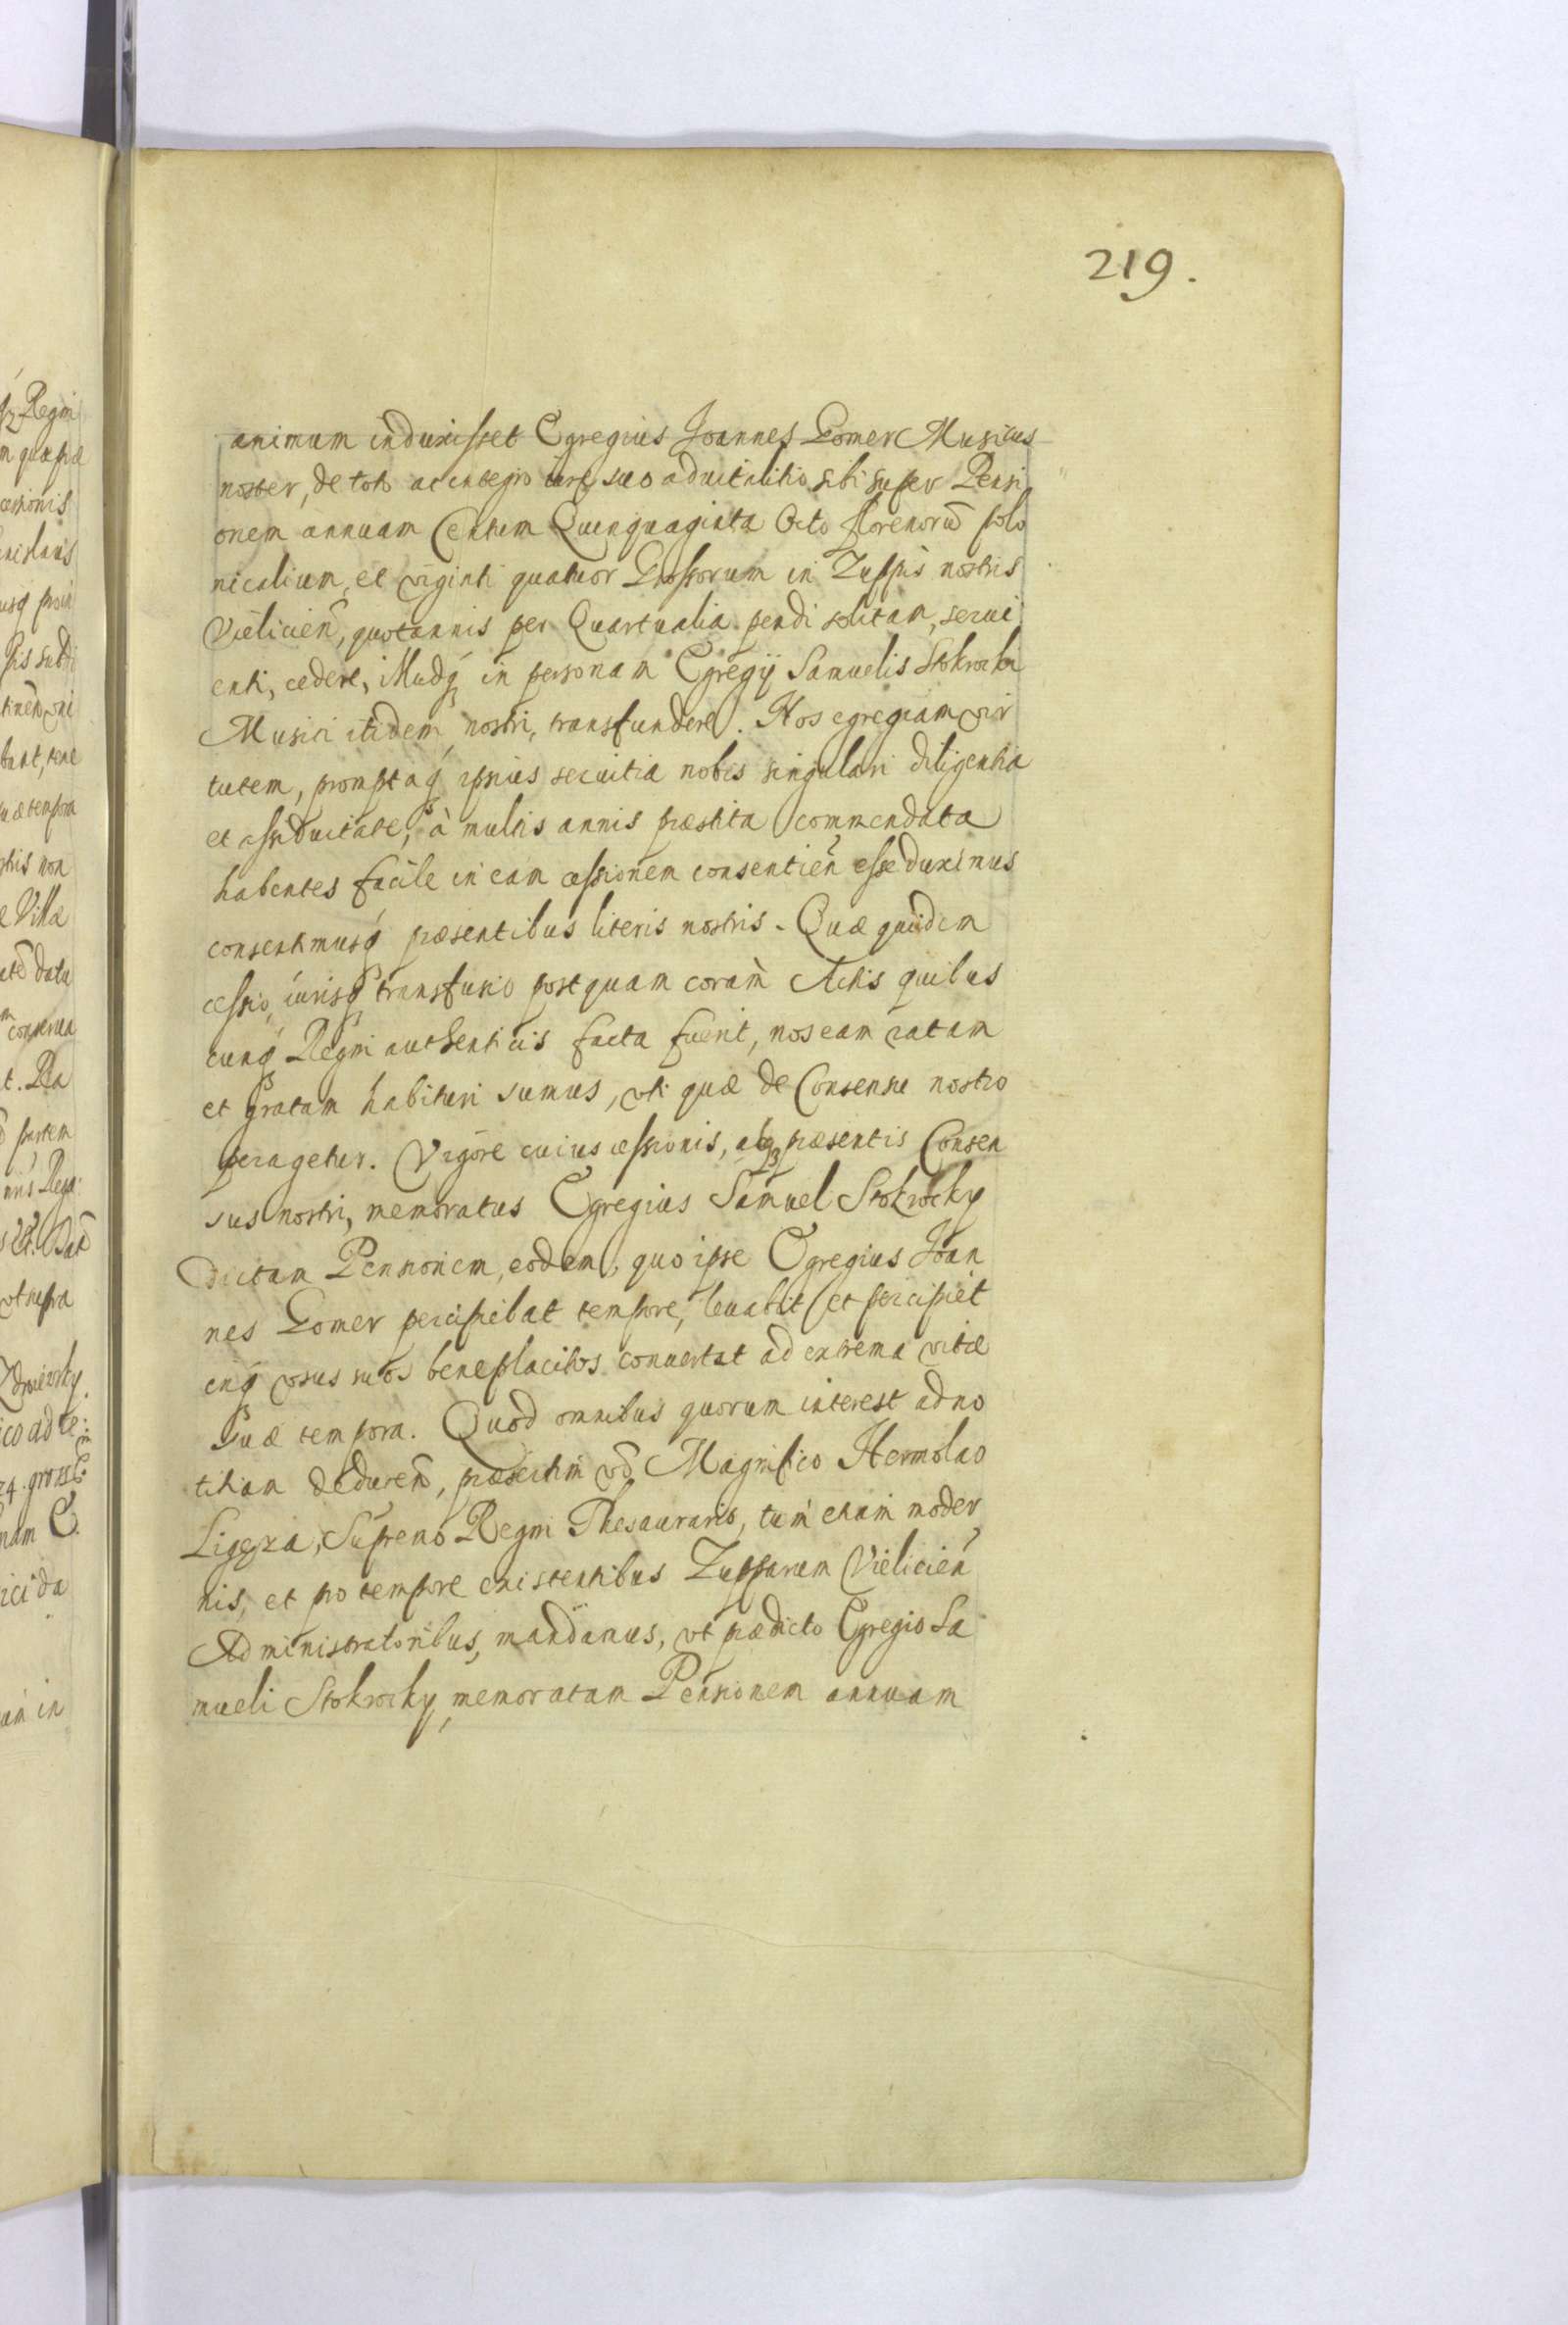 219.
animum induxisset Egregius Joannes Gomer Musicus
noster, de toto ac integro iure suo aduitalitio sibi super Pensi
onem annuam Centum Quinquaginta Octo florenorū polo
nicalium, et viginti quatuor Grossorum in Zuppis nostris
Vieliciēn, quotannis per Quartualia pendi solitam, serui
enti, cedere, illudq́ in personam Egregij Samuelis Stokrocki
Musici itidem nostri, transfundere. Nos egregiam vir
tutem, promptaq́ ipsius seruitia nobis singulari diligentia
et assiduitate, à multis annis præstita commendata
habentes facile in eam cessionem consentiēn esse duximus
consentimusq́ præsentibus literis nostris. Quæ quidem
cessio, iurisq́ transfusio postquam coram Actis quibus
cunq́ Regni authenticis facta fuerit, nos eam ratam
et gratam habituri sumus, vti quæ de Consensu nostro
peragetur. Vigore cuius cessionis, atq́ præsentis Consen
sus nostri, memoratus Egregius Samuel Stokrocky
dictam Pensionem, eodem, quo ipse Egregius Joan
nes Gomer percipiebat tempore, leuabit et percipiet
inq́ vsus suos beneplacitos conuertet ad extrema vitæ
suæ tempora. Quod omnibus quorum interest ad no
titiam deducen̄, præsertim vō Magnifico Hermolao
Ligęza, Supremo Regni Thesaurario, tum etiam moder
nis, et pro tempore existentibus Zupparum Vieliciēn
Administratoribus, mandamus, vt prædicto Egregio Sa
mueli Stokrocky, memoratam Pensionem annuam